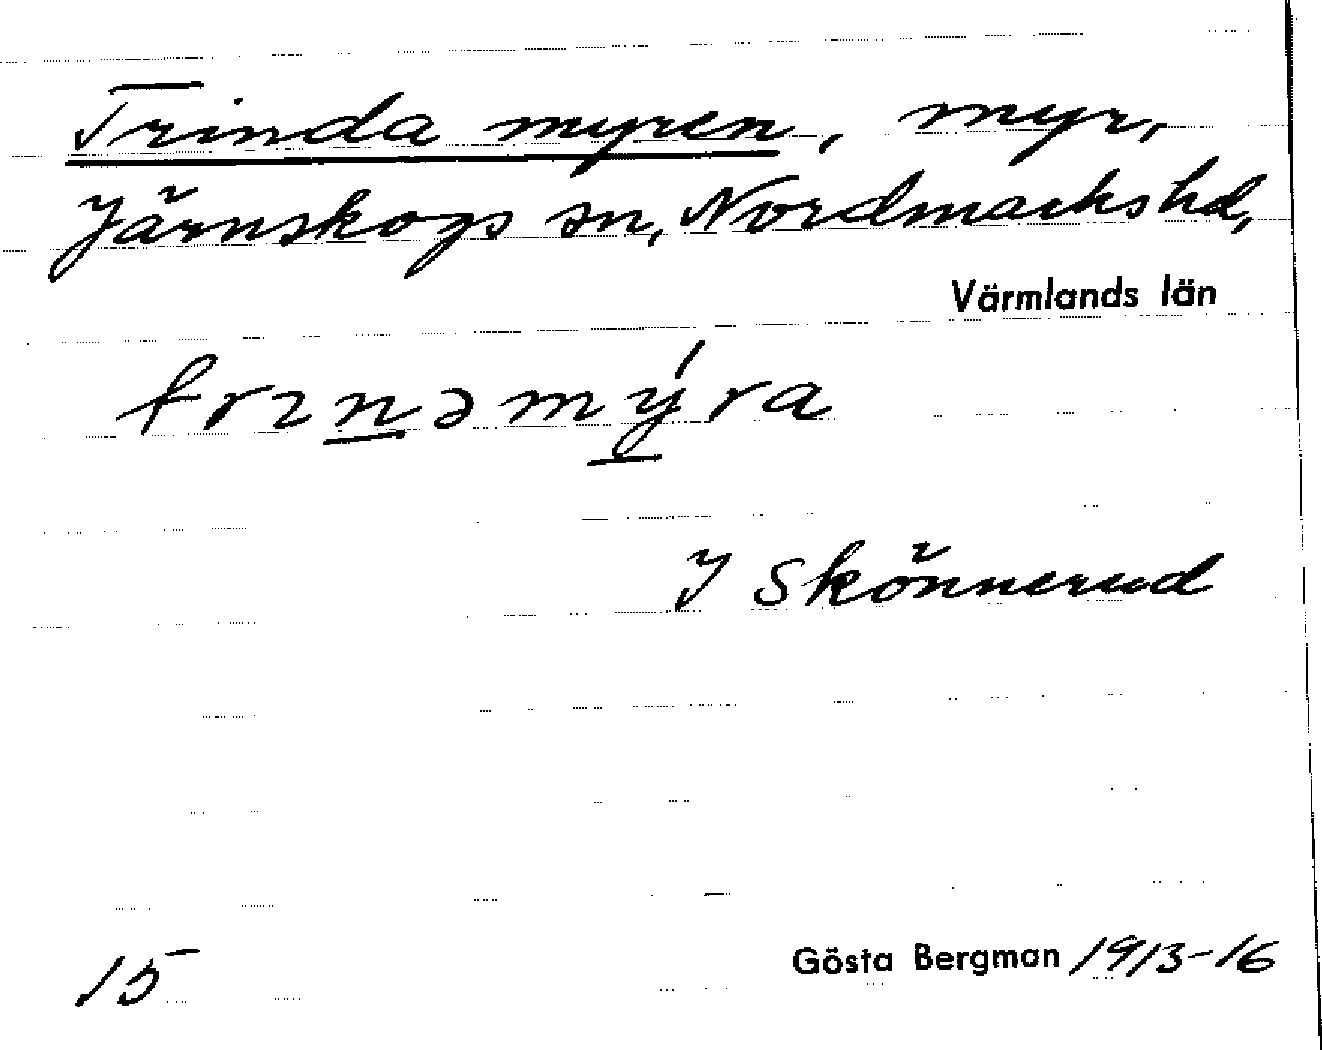 Trinda myren, myr,
Järnskogs sn, Nordmarks hd,
Värmlands län
trɪnəmýra
I Skönnerud
15
Gösta Bergman 1913-16